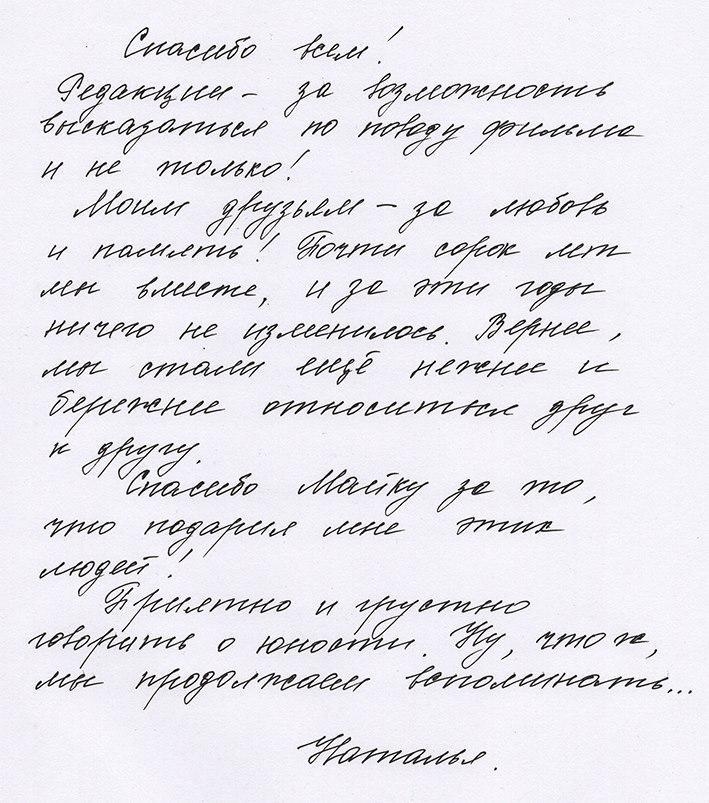 Спасибо всем!
Редакции – за возможность
высказаться по поводу фильма
и не только!
Моим друзьям – за любовь
и память! Почти сорок лет
мы вместе, и за эти годы
ничего не изменилось. Вернее,
мы стали ещё нежнее и
бережнее относиться друг
к другу.
Спасибо Майку за то,
что подарил мне этих
людей!
Приятно и грустно
говорить о юности. Ну, что ж,
мы продолжаем вспоминать...
Наталья.